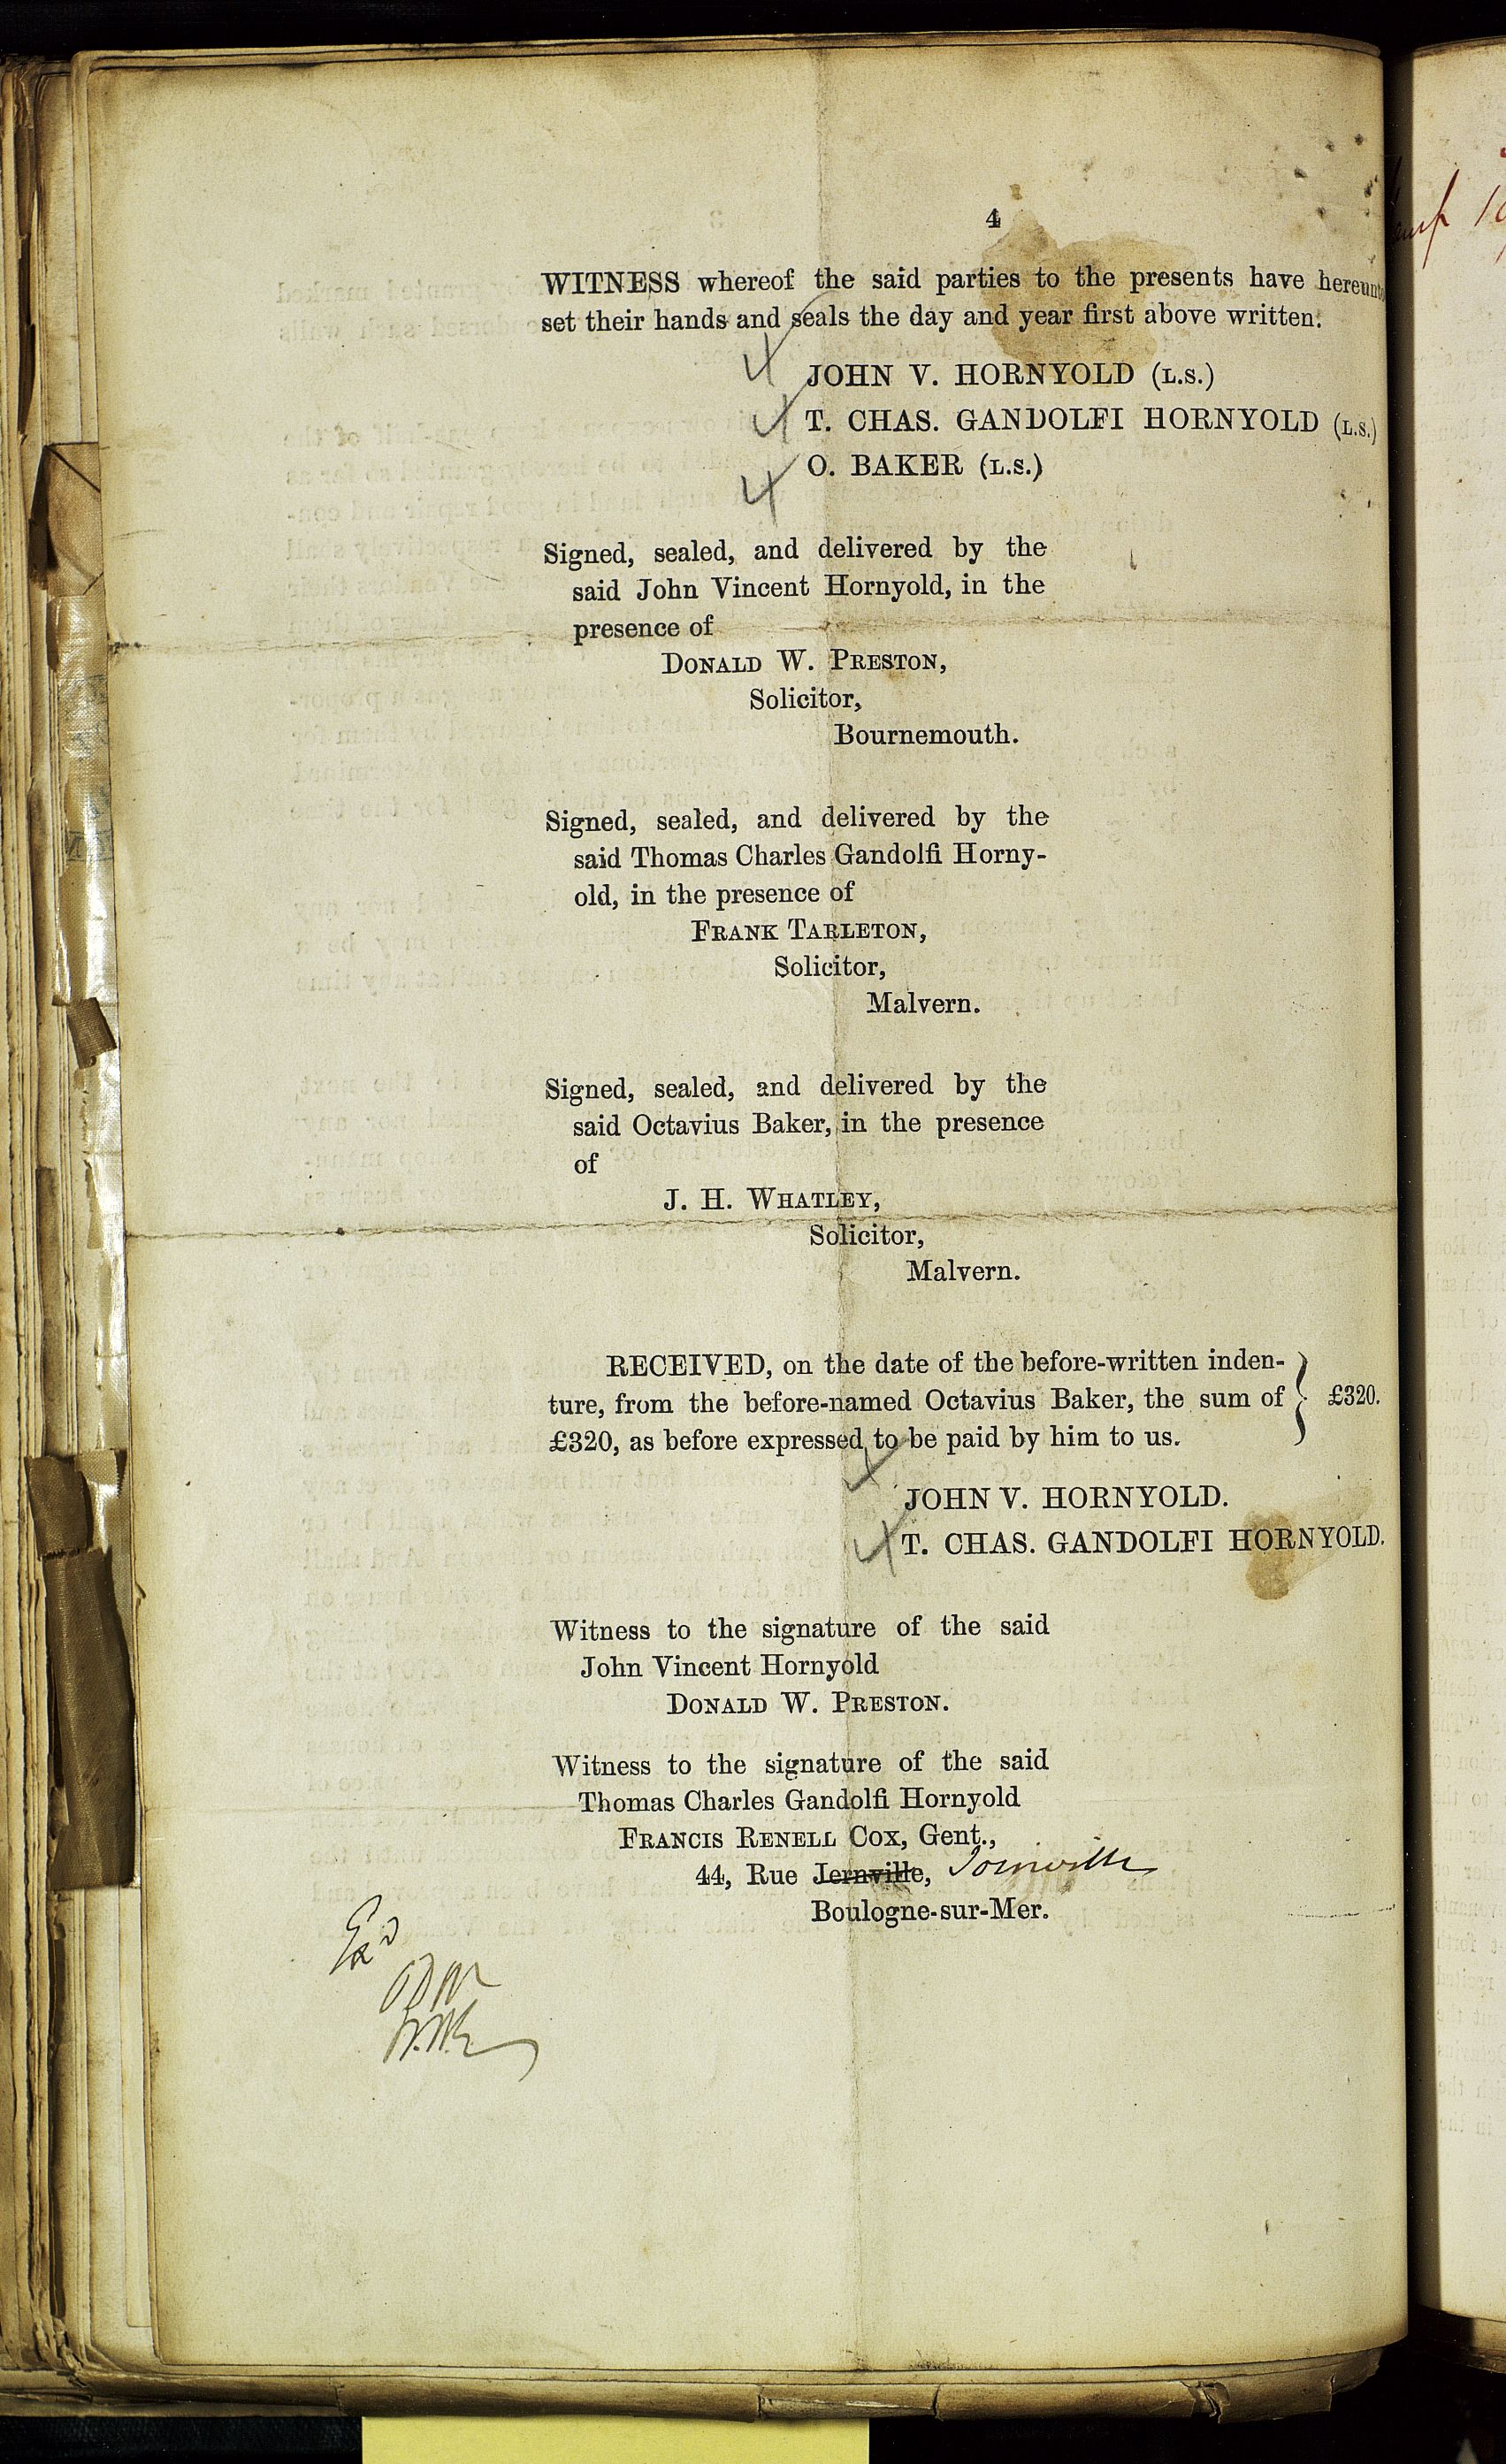 4
WITNESS whereof the said parties to the presents have hereunto
set their hands and seals the day and year first above written.
JOHN V. HORNYOLD (L.S.)
T. CHAS. GANDOLFI HORNYOLD (L.S.)
O. BAKER (L.S.)
Signed, sealed, and delivered by the
said John Vincent Hornyold, in the
presence of
DONALD W. PRESTON,
Solicitor,
Bournemouth.
Signed, sealed, and delivered by the
said Thomas Charles Gandolfi Horny-
old, in the presence of
FRANK TARLETON,
Solicitor,
Malvern.
Signed, sealed, and delivered by the
said Octavius Baker, in the presence
of
J. H. WHATLEY,
Solicitor,
Malvern.
RECEIVED, on the date of the before-written inden-
ture, from the before-named Octavius Baker, the sum of } £320.
£320, as before expressed to be paid by him to us.
JOHN V. HORNYOLD.
T. CHAS. GANDOLFI HORNYOLD.
Witness to the signature of the said
John Vincent Hornyold
DONALD W. PRESTON.
Witness to the signature of the said
Thomas Charles Gandolfi Hornyold
FRANCIS RENELL COX, Gent.,
44, Rue Jernville, Joinville
Boulogne-sur-Mer.
Exd